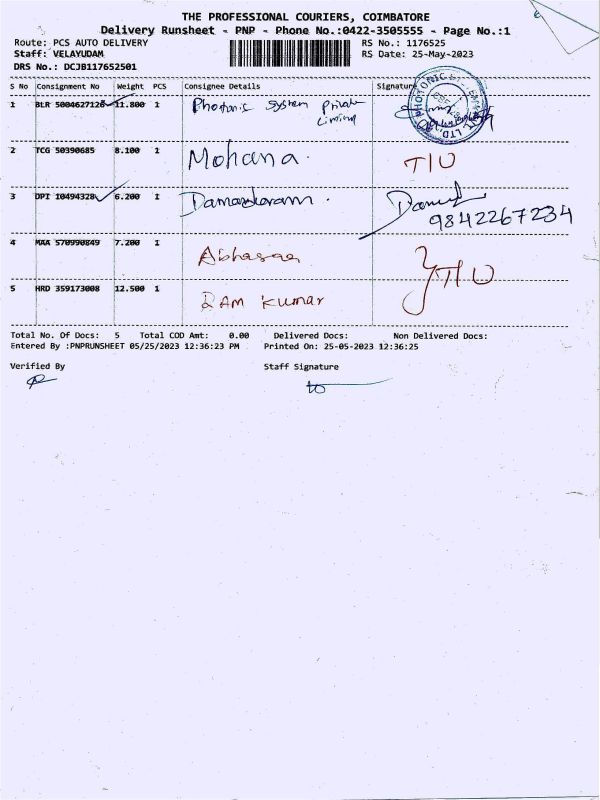 THE PROFESSIONAL COURIERS, COIMBATORE
Delivery Runsheet - PNP - Phone No.:0422-3505555 - Page No.:1
Route: PCS AUTO DELIVERY RS No.: 1176525
Staff: VELAYUDAM RS Date: 25-May-2023
DRS No.: DCJB117652501
S No Consignment No Weight PCS Consignee Details Signature
1 BLR 5004627128 11.800 1 Photonic System Private
Limited
2 TCG 50390685 8.100 1 Mohana. TIU
3 DPI 10494328 6.200 1 Damardaram.
9842267234
4 MAA 570990849 7.200 1 Abhasaa
5 HRD 359173008 12.500 1 RAM Kumar
Total No. Of Docs: 5 Total COD Amt: 0.00 Delivered Docs: Non Delivered Docs:
Entered By :PNPRUNSHEET 05/25/2023 12:36:23 PM Printed On: 25-05-2023 12:36:25
Verified By Staff Signature